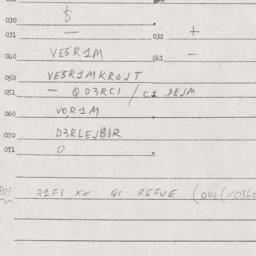 030 $
031 — 032 +
040 VE5R1M 041 —
050 VE5R1MKROJT
051 — QD3RCI / C1 DEJM
060 VO,R1M
070 D3RLEJB3R
071 0
Q1F1 XX Q1 REFUE